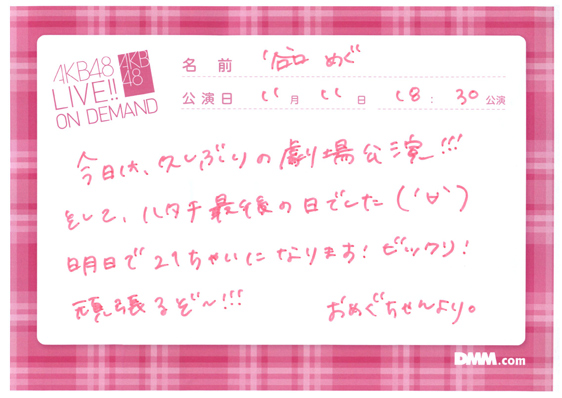 AKB48
LIVE!!
ON DEMAND
AKB
48
名 前 谷口 めぐ
公演日 11月 11日 18:30公演
今日は、久しぶりの劇場公演!!!
そして、ハタチ最後の日でした('∀')
明日で21ちゃいになります!ビックリ!
頑張るぞ〜!!!
おめぐちゃんより。
DMM.com